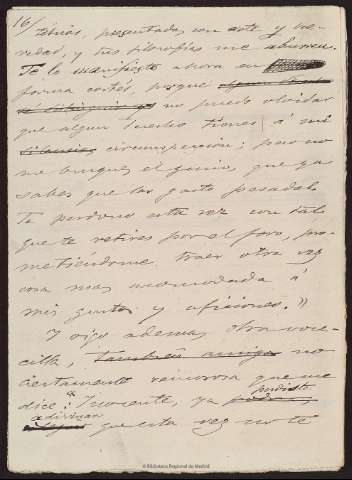 16/
rias, presentadas con arte y no-
vedad, y tus filosofías me aburren.
Te lo manifiesto ahora en
forma cortés, porque
no puedo olvidar
que algun derecho tienes á mi
circunspeccion; pero no
me busques el genio, que ya
sabes que las gasto pesadas.
Te perdono esta vez con tal
que te retires por el foro, pro-
metiéndome traer otra vez
cosa mas acomodada á
mis gustos y aficiones."
Y oigo ademas otra voce-
cilla, tambien amiga no
ciertamente rencorosa que me
dice: Inocente, ya pudiste
adivinar que esta vez no te
Biblioteca Regional de Madrid